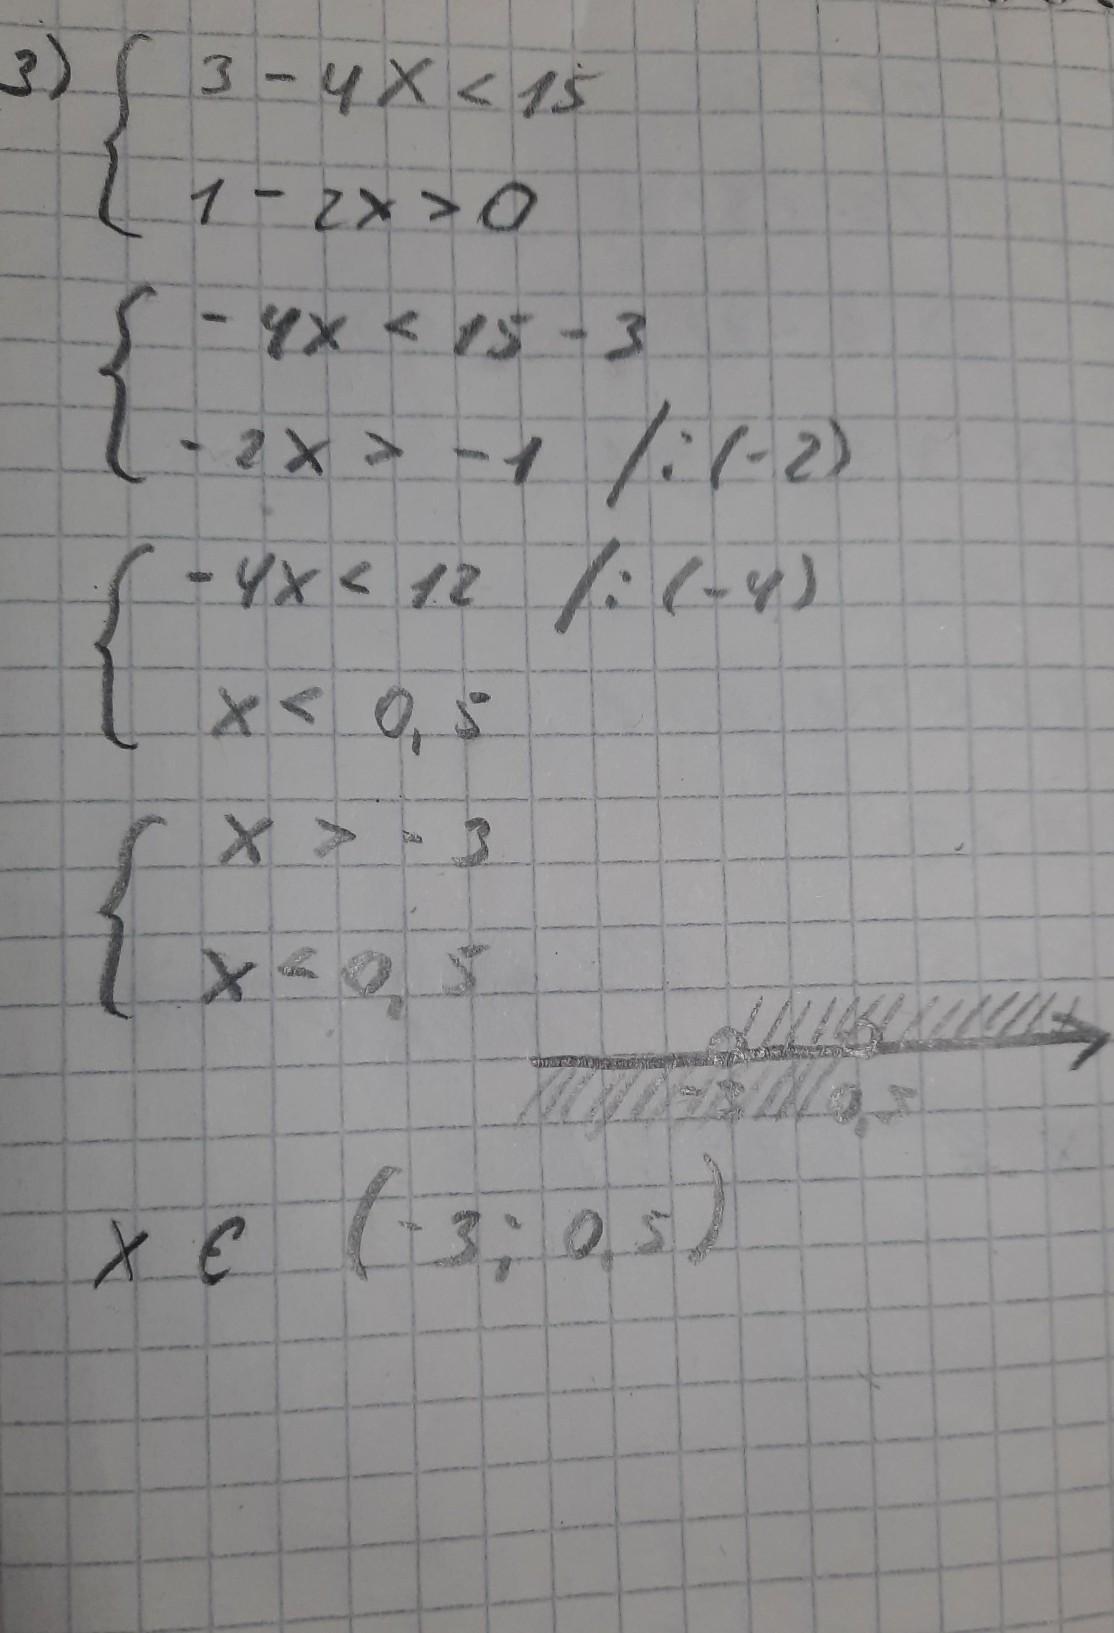 3) { 3 - 4x < 15
1 - 2x > 0
{ - 4x < 15 - 3
- 2x > - 1 /:(-2)
{ - 4x < 12 /:(-4)
x < 0,5
{ x > - 3
x < 0,5
-3 0,5
x ∈ (-3; 0,5)